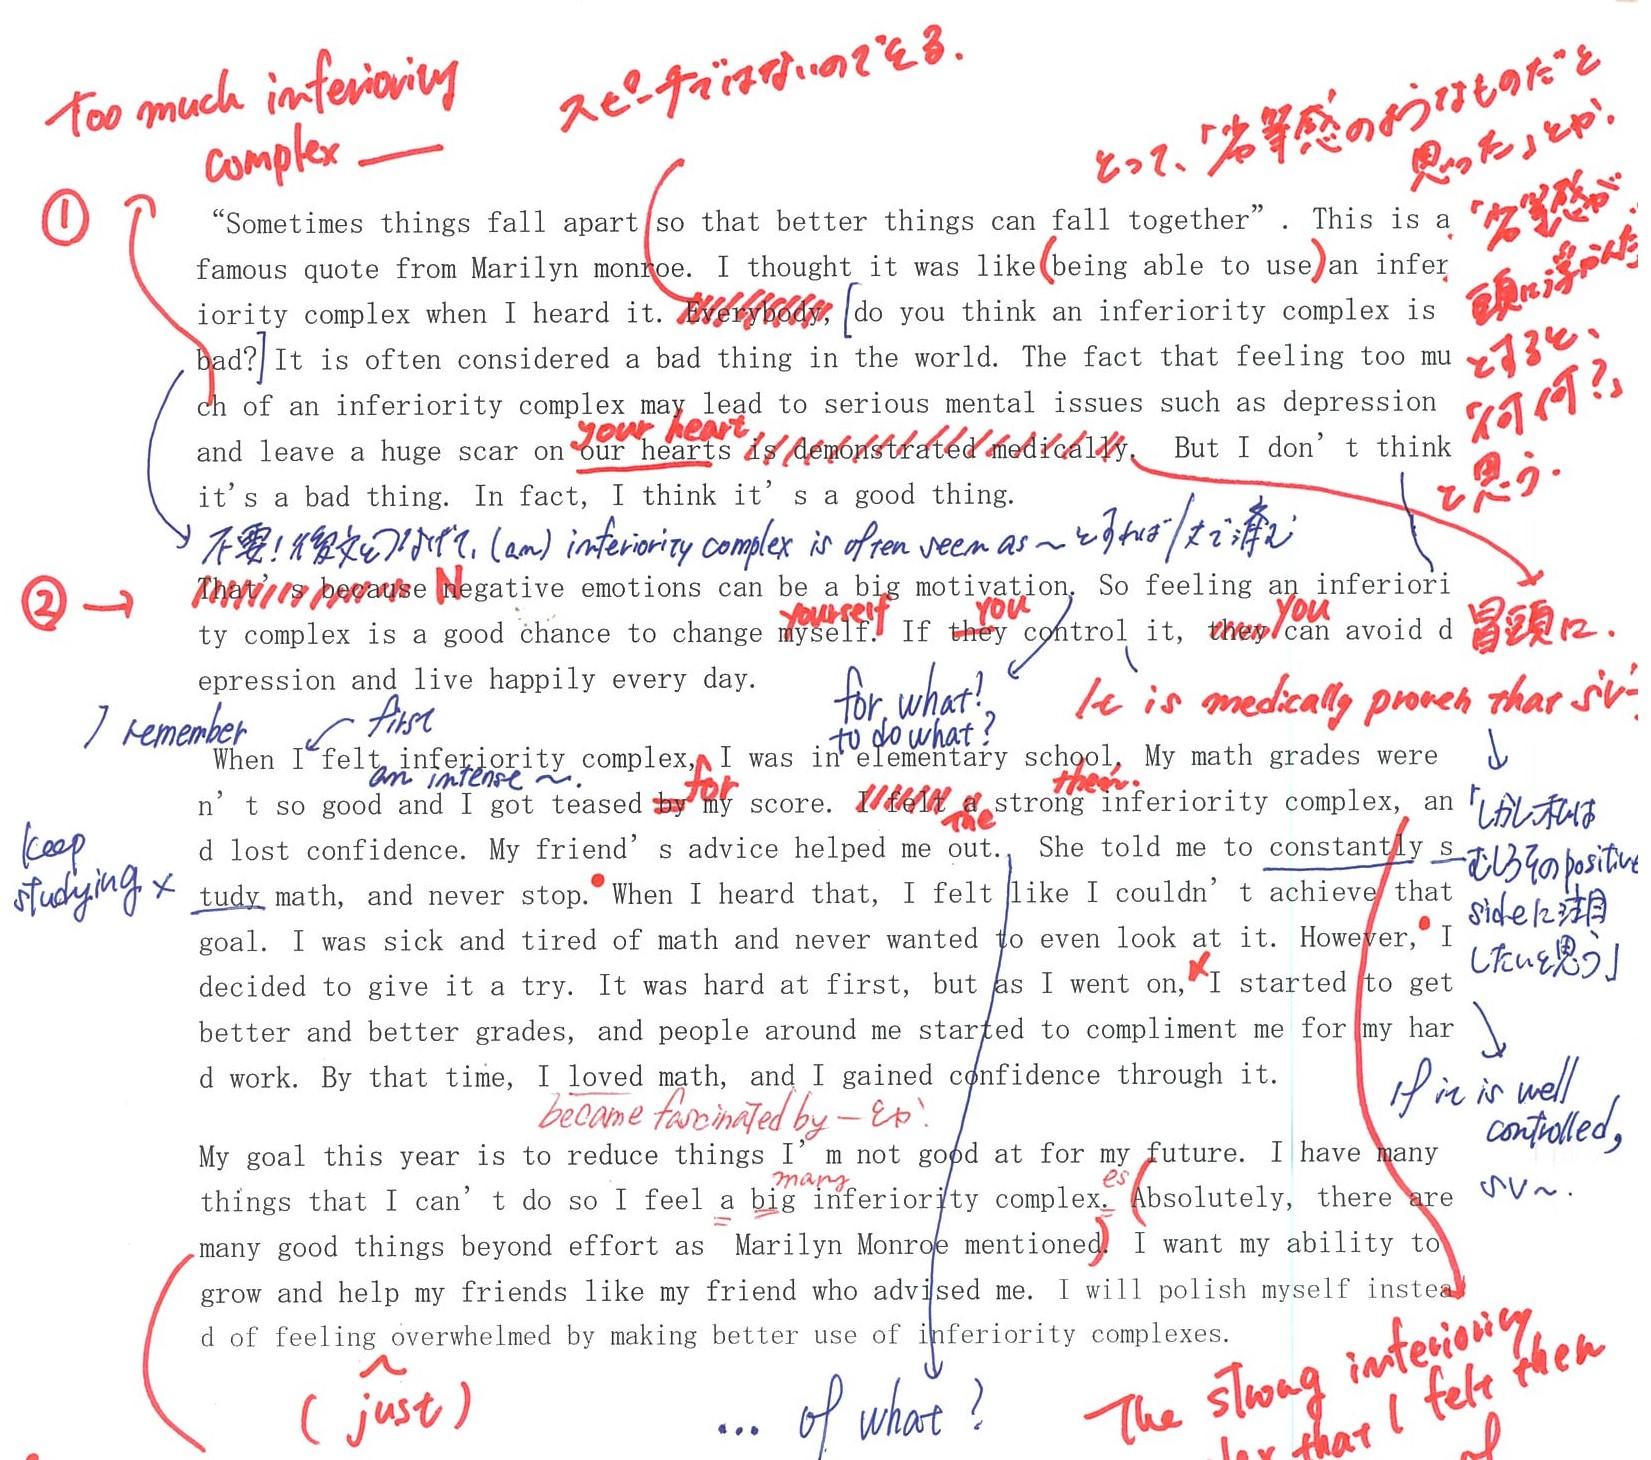 Too much inferiority
complex —
スピーチではないのでとる.
とって、「劣等感のようなものだと
思った」とか.
①
“Sometimes things fall apart so that better things can fall together” . This is a
「劣等感が
famous quote from Marilyn monroe. I thought it was like (being able to use) an infer
頭に浮かんだ」
iority complex when I heard it. Everybody, [do you think an inferiority complex is
とすると、
bad?] It is often considered a bad thing in the world. The fact that feeling too mu
「何何?」
ch of an inferiority complex may lead to serious mental issues such as depression
your heart
and leave a huge scar on our hearts is demonstrated medically. But I don’ t think
と思う.
it’s a bad thing. In fact, I think it’ s a good thing.
不要! 後文とつなげて, (an) inferiority complex is often seen as ~ とすれば1文で済む
② →
That’ s because Negative emotions can be a big motivation. So feeling an inferiori
yourself you you
ty complex is a good chance to change myself. If they control it, they can avoid d
冒頭に.
epression and live happily every day.
for what?
to do what?
It is medically proven that SV~
I remember
first
When I felt inferiority complex, I was in elementary school. My math grades were
an intense ~.
for
then.
n’ t so good and I got teased by my score. I felt a strong inferiority complex, an
the
「しかし私は
keep
studying ×
d lost confidence. My friend’ s advice helped me out. She told me to constantly s
むしろそのpositive
tudy math, and never stop. When I heard that, I felt like I couldn’ t achieve that
sideに注目
goal. I was sick and tired of math and never wanted to even look at it. However, I
したいと思う」
decided to give it a try. It was hard at first, but as I went on, I started to get
better and better grades, and people around me started to compliment me for my har
d work. By that time, I loved math, and I gained confidence through it.
If it is well
controlled,
SV~.
became fascinated by — とか.
My goal this year is to reduce things I’ m not good at for my future. I have many
many
es
things that I can’ t do so I feel a big inferiority complex. (Absolutely, there are
many good things beyond effort as Marilyn Monroe mentioned.) I want my ability to
grow and help my friends like my friend who advised me. I will polish myself instea
d of feeling overwhelmed by making better use of inferiority complexes.
(just)
... of what?
The strong inferiority
that I felt then
of